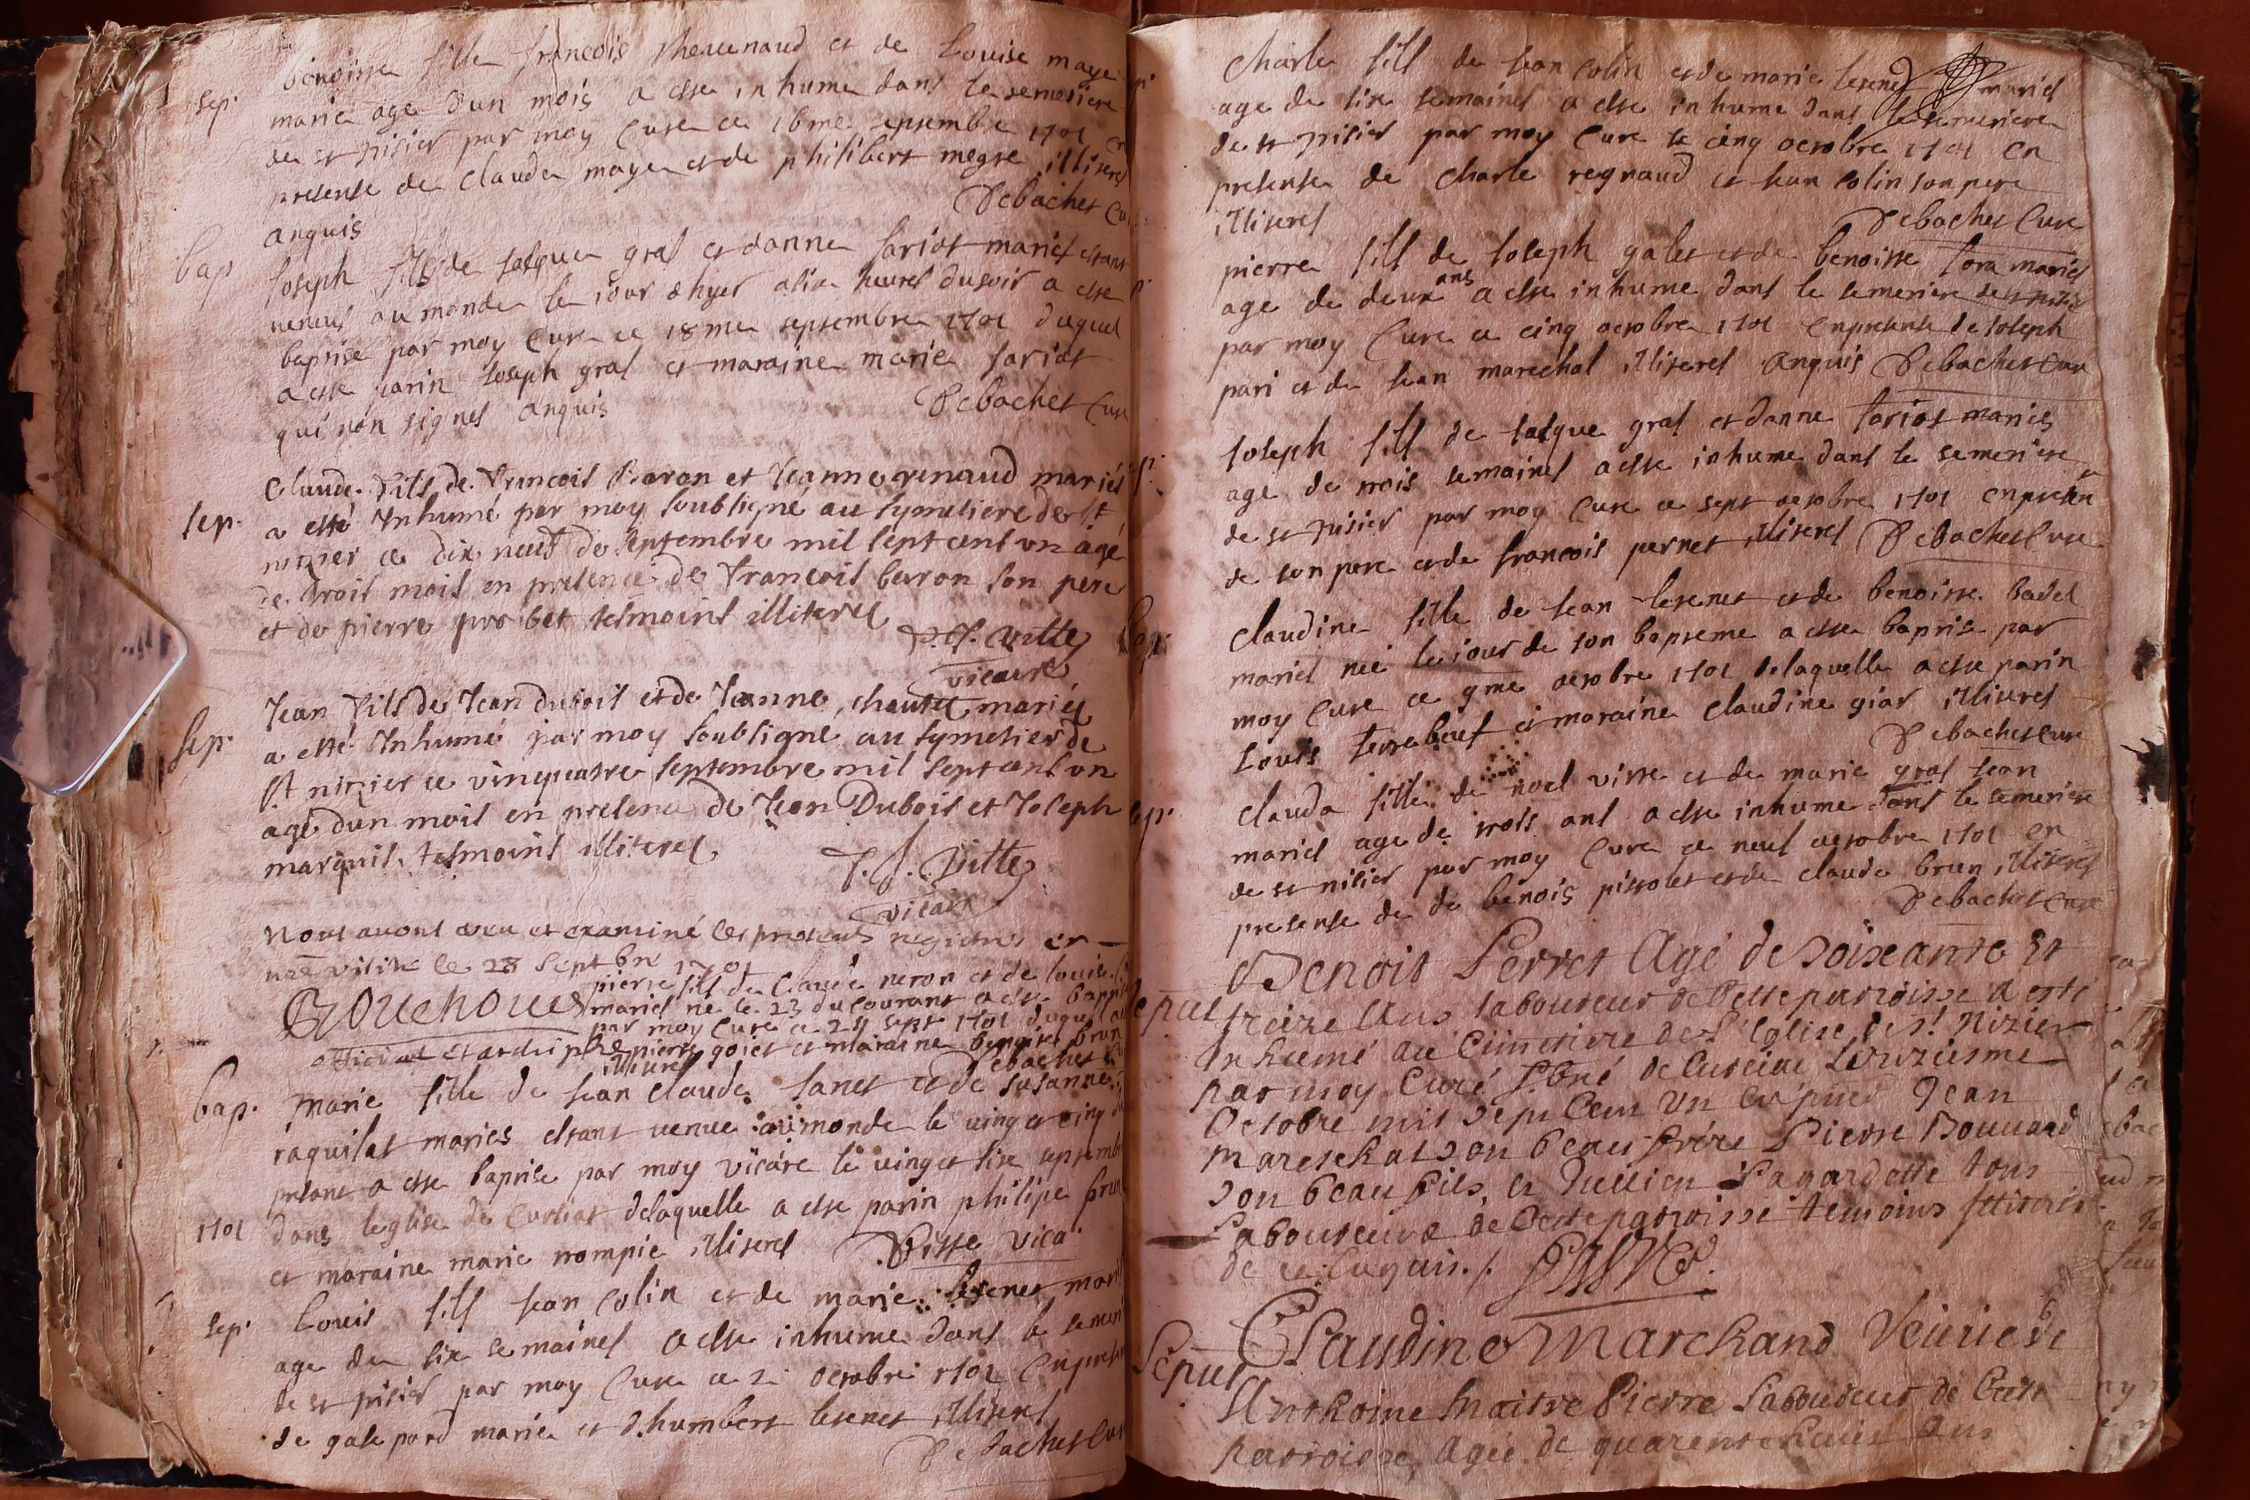 benoisse fille francois thevenaud et de Louise maye
sep. marie age dun mois a este inhume dans le semetiere
de st nisier par moy Cure ce 16me septembre 1701 en
presense de claude maye et de philibert megre illiteres
anquis Debachet Cu
bap Joseph fils de Jasque gras et danne sariot maries estant
venus au monde le jour dhyer a six heures du soir a este
baptise par moy Cure ce 18me septembre 1701 duquel
a este parin Joseph gras et maraine marie sariot
qui non signes anquis Debachet Cure
Claude fils de francois Baron et Jeanne grenaud mariés
sep. a esté Inhumé par moy soubsigné au symetiere de st
nizier ce dix neuf de septembre mil sept cent un agé
de trois mois en presence de francois barron son pere
et de pierre probet tesmoins illiteres
Vitte
vicaire
Jean fils de Jean dubois et de Jeanne mariés
sep. a esté Inhumé par moy soubsigne au symetier de
st nizier ce vinquatre septembre mil sept cent un
agé dun mois en presence de Jean Dubois et Joseph
marquis tesmoins illiteres,
Vitte
vicaire
Nous avons veu et examiné les presents registres en
nre visite le 28 septbre 1701
pierre fils de Claude neron et de louise
maries ne le 23 du courant a este baptise
par moy Cure ce 24 sept 1701 duquel a
official et archiptre pierre goiet et maraine benoiste brun
illiteres Debachet
bap. marie fille de Jean claude Janet et de susanne
raquilat maries estant venue au monde le vingt et cinq du
presant a este baptise par moy vicaire le vingt et six septembre
1701 dans leglise de Curciat delaquelle a este parin philipe brun
et maraine marie nompie illiteres Visse vica.
sep. Louis fils Jean Colin et de marie lesenet maries
age de six semaines a este inhume dans le semeti
de st nisier par moy Cure ce 2 octobre 1701 en presen
de gaspard marie et dhumbert lesenet illiteres
Debachet Cur
Charle fils de Jean Colin et de marie lesenet maries
age de six semaines a este inhume dans le semetiere
de st nisier par moy Cure le cinq octobre 1701 en
presense de Charle regnaud et Jean Colin son pere
illiteres Debachet Cure
pierre fils de Joseph galet et de benoisse sora maries
age de deux ans a este inhume dans le semetiere de st nisier
par moy Cure ce cinq octobre 1701 en presense de Joseph
pari et de Jean marechal illiteres anquis Debachet Cure
Joseph fils de Jasque gras et danne sariot maries
age de trois semaines a este inhume dans le semetiere
de st nisier par moy Cure ce sept octobre 1701 en presen
de son pere et de francois pernet illiteres Debachet Cure
claudine fille de Jean lesenet et de benoisse badel
bap. maries née le jour de son bapteme a este baptise par
moy Cure ce 9me octobre 1701 delaquelle a este parin
Louis terrebeuf et maraine claudine giar illiteres
Debachet Cure
clauda fille de noel visse et de marie gras Jean
sep. maries age de trois ans a este inhume dans le semetiere
de st nisier par moy Cure ce neuf octobre 1701 en
presense de de benois pittolet et de claude brun illiteres
Debachet Cure
Benoit Perret Agé de Soixante et
sepul treize Ans laboureur de Cette parroisse a esté
Inhumé au Cimetiere de L'Eglise de st Nizier
par moy Curé sbné de Curciat Le onziesme
Octobre mil sept Cent Un En pnce Jean
Mareschal son beau frere Pierre Bouvard
son beau fils, et Jullien Lagardette tous
Laboureurs de Cette parroisse temoins Illiteres
de ce Enquis./.
Claudine Marchand Veuve de
Sepul. Anthoine Maitre Pierre Laboureur de Cette
parroisse, Agée de quarente huit Ans